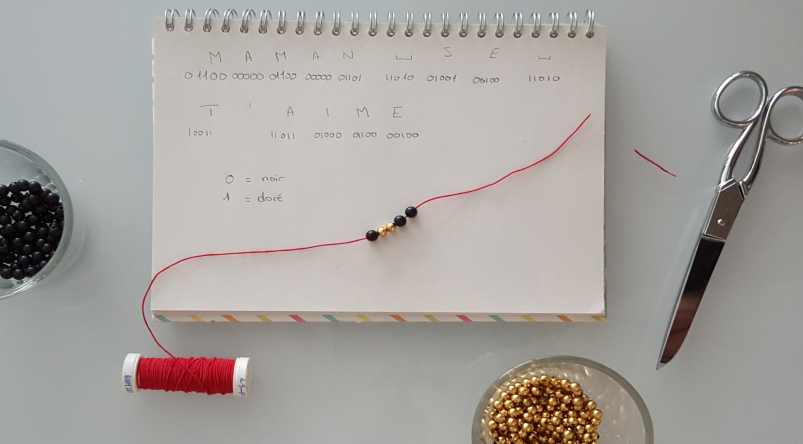 M A M A N ␣ J E ␣
01100 00000 01100 00000 01101 11010 01001 00100 11010
T ' A I M E
10011 11011 01000 01100 00100
0 = noir
1 = doré